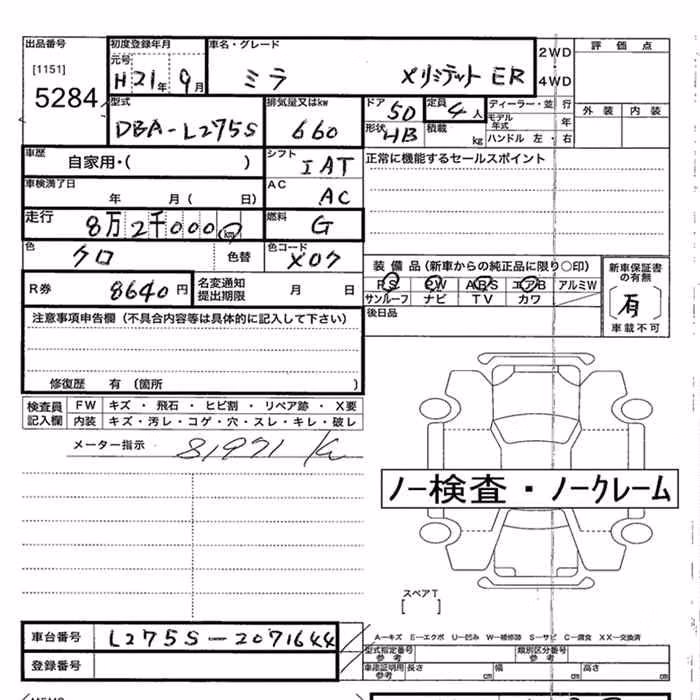 出品番号 初度登録年月 車名・グレード 2WD 評価点
[1151] 元号
5284 H21年 9月 ミラ メリミテット ER 4WD
型式 排気量又はkw ドア 50 定員 4人 ディーラー・並行 外装 内装
DBA-L275S 660 形状 HB 積載 kg モデル年式 年
ハンドル 左・右
車歴 自家用・( ) シフト IAT 正常に機能するセールスポイント
車検満了日 年 月( 日) AC AC
走行 8万2千000km 燃料 G
色 クロ 色替 色コード X07
装備品(新車からの純正品に限り○印) 新車保証書の有無
R券 8640円 名変通知提出期限 月 日 PS PW ABS エアB アルミW
サンルーフ ナビ TV カワ 有
注意事項申告欄(不具合内容等は具体的に記入して下さい) 後日品 車載不可
修復歴 有 (箇所 )
検査員 FW キズ・飛石・ヒビ割・リペア跡・X要
記入欄 内装 キズ・汚レ・コゲ・穴・スレ・キレ・破レ
メーター指示 81971 K
ノー検査・ノークレーム
スペアT
[ ]
車台番号 L275S-2071644 A-キズ E-エクボ U-凹み W-補修跡 S-サビ C-腐食 XX-交換済
型式指定番号 参考 類別区分番号 参考
登録番号 車庫証明用 参考 長さ cm 幅 cm 高さ cm
MEMO